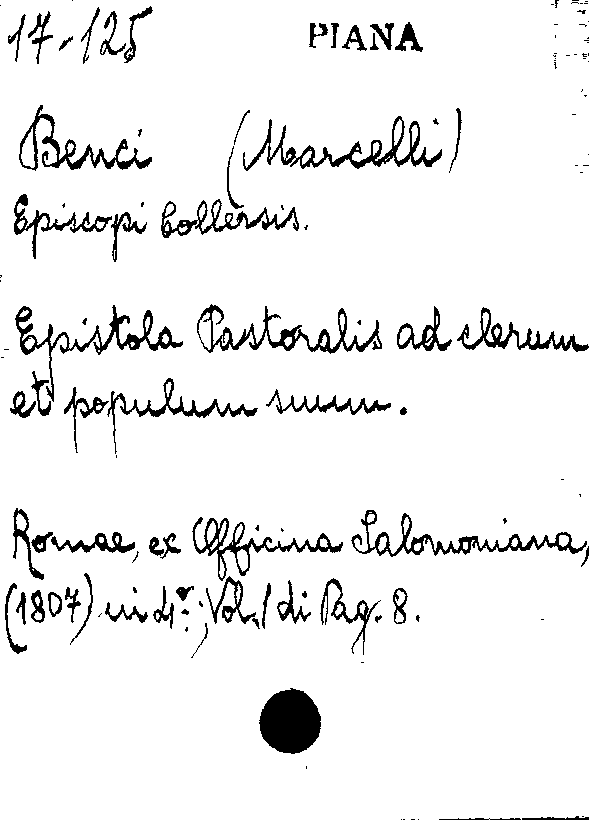 17-125 PIANA
Benci (Marcelli)
Episcopi Collensis.
Epistola Pastoralis ad clerum
et populum suum.
Romae, ex Officina Salomoniana,
(1807) in 4º; Vol. 1 di Pag. 8.